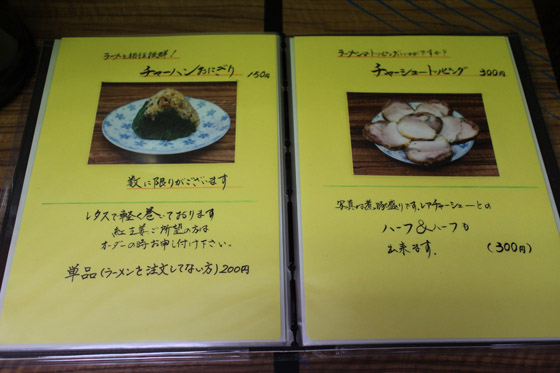 ラーメンと相性抜群!
チャーハンおにぎり 150円
数に限りがございます
レタスで軽く巻いております
紅生姜ご希望の方は
オーダーの時お申し付け下さい。
単品(ラーメンを注文してない方)200円
ラーメンのトッピングにいかがですか?
チャーシュートッピング 300円
写真は蒸し豚盛りです。レアチャーシューとの
ハーフ&ハーフも
出来ます。 (300円)